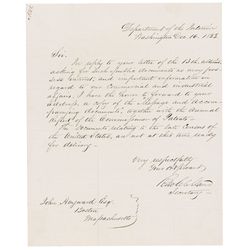 Department of the Interior
Washington Dec. 16. 1853
Sir.
In reply to your letter of the 13th instant,
asking for such public documents as may pos-
sess interest, and impart information in
regard to our Commercial and industrial
affairs, I have the honor to forward to your
address, a copy of the Message and Accom-
panying documents, together with the Annual
Report of the Commissioner of Patents.
The Documents relating to the last Census of
the United States, are not at this time ready
for delivery.
Very respectfully
Your Obt Servt
Secretary
John Hayward Esq.
Boston
Massachusetts